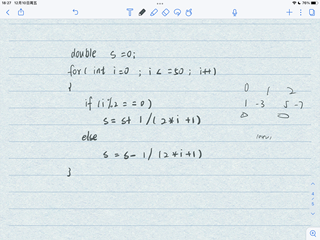 18:27 12月10日周五
76%
double s=0;
for( int i=0 ; i<=50; i++)
{
if (i%2 ==0)
s= s+ 1/(2*i+1)
else
s= s- 1/(2*i+1)
}
0 1 2
1 -3 5 -7